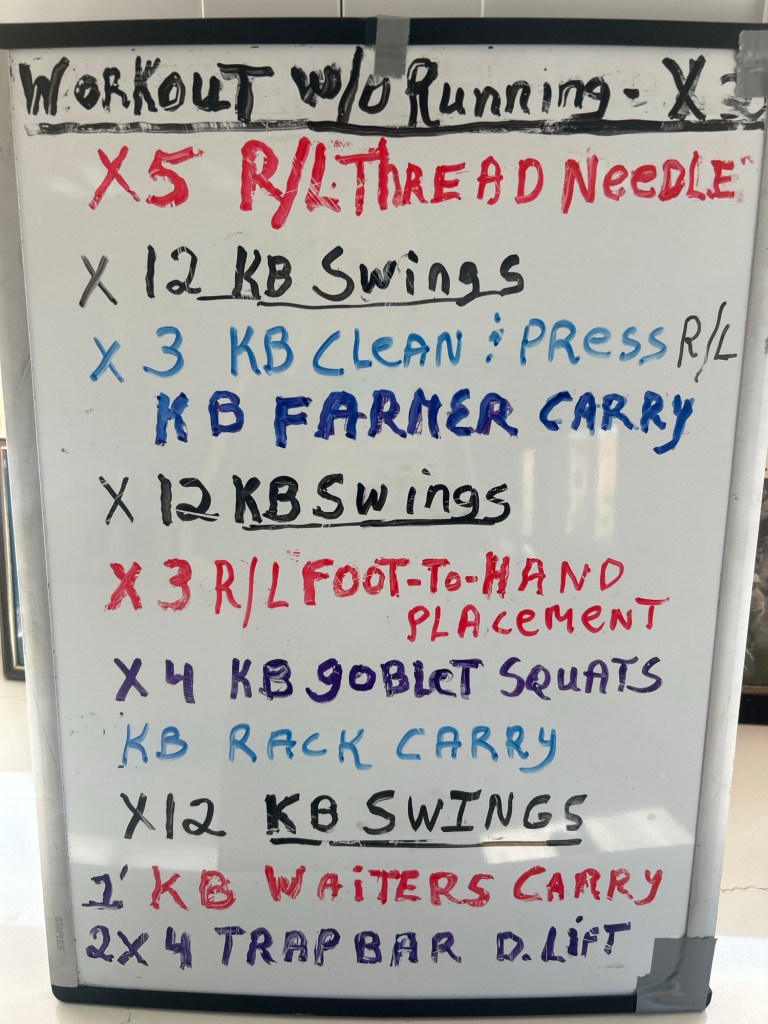 WORKOUT w/o Running - X 3
X5 R/L THREAD NeeDLE"
X 12 KB Swings
X 3 KB CLeAN & PRess R/L
KB FARMER CARRY
X 12 KB Swings
X 3 R/L FOOT-To-HAND
PLACeMENT
X 4 KB goBLeT SQUATS
KB RACK CARRY
X12 KB SWINGS
1' KB WAiTERS CARRY
2X4 TRAP BAR D. LiFT
STAPLES